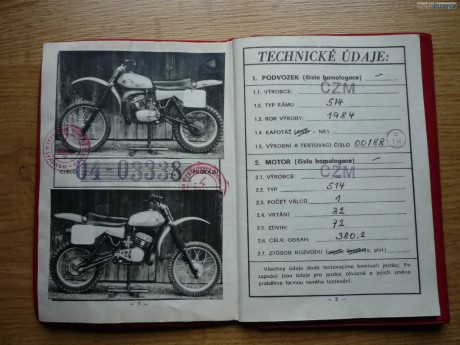 ČÍSLO 04-03338 PRŮKAZU
- 1 -
TECHNICKÉ ÚDAJE:
1. PODVOZEK (číslo homologace) -
1.1. VÝROBCE: ČZM
1.2. TYP RÁMU 514
1.3. ROK VÝROBY: 1984
1.4. KAPOTÁŽ (ANO - NE)
1.5. VÝROBNÍ A TESTOVACÍ ČÍSLO 00188
2. MOTOR (číslo homologace) -
2.1. VÝROBCE: ČZM
2.2. TYP 514
2.3. POČET VÁLCŮ 1
2.4. VRTÁNÍ 82
2.5. ZDVIH: 72
2.6. CELK. OBSAH: 380.2
2.7. ZPŮSOB ROZVODU
Všechny údaje dodá testovacímu komisaři jezdec. Po
zapsání jsou údaje pro jezdce závazné a jejich změna
proběhne formou nového testování.
- 2 -